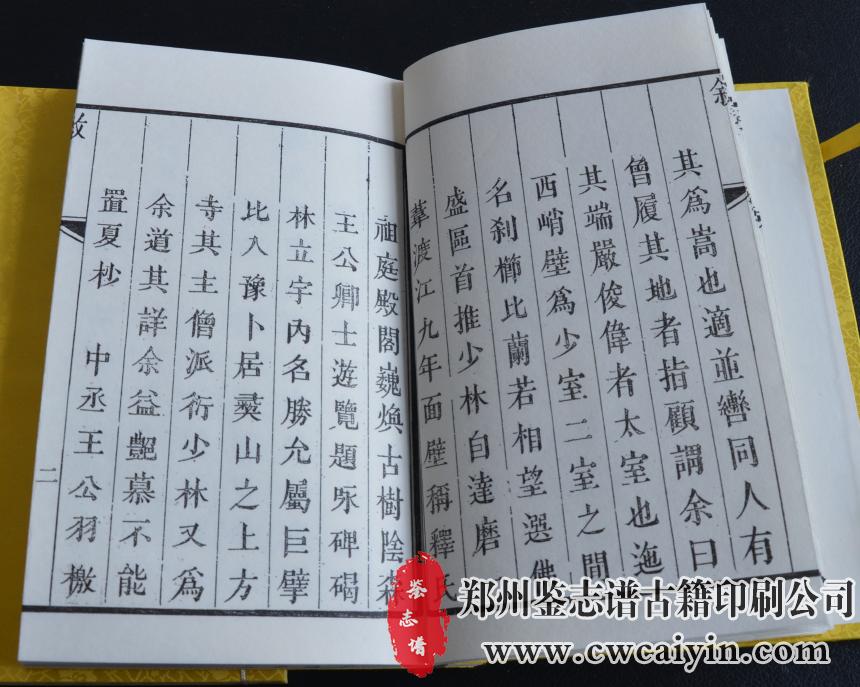 叙
其爲嵩也適並轡同人有
曾履其地者指顧謂余曰
其端嚴俊偉者太室也迤
西峭壁爲少室二室之間
名刹櫛比蘭若相望選佛
盛區首推少林自達磨
葦渡江九年面壁稱釋氏
祖庭殿閣巍煥古樹陰森
王公卿士遊覽題咏碑碣
林立宇內名勝允屬巨擘
比入豫卜居夷山之上方
寺其主僧派衍少林又爲
余道其詳余益艷慕不能
置夏杪 中丞王公羽檄
二
鉴志谱
郑州鉴志谱古籍印刷公司
www.cwcaiyin.com